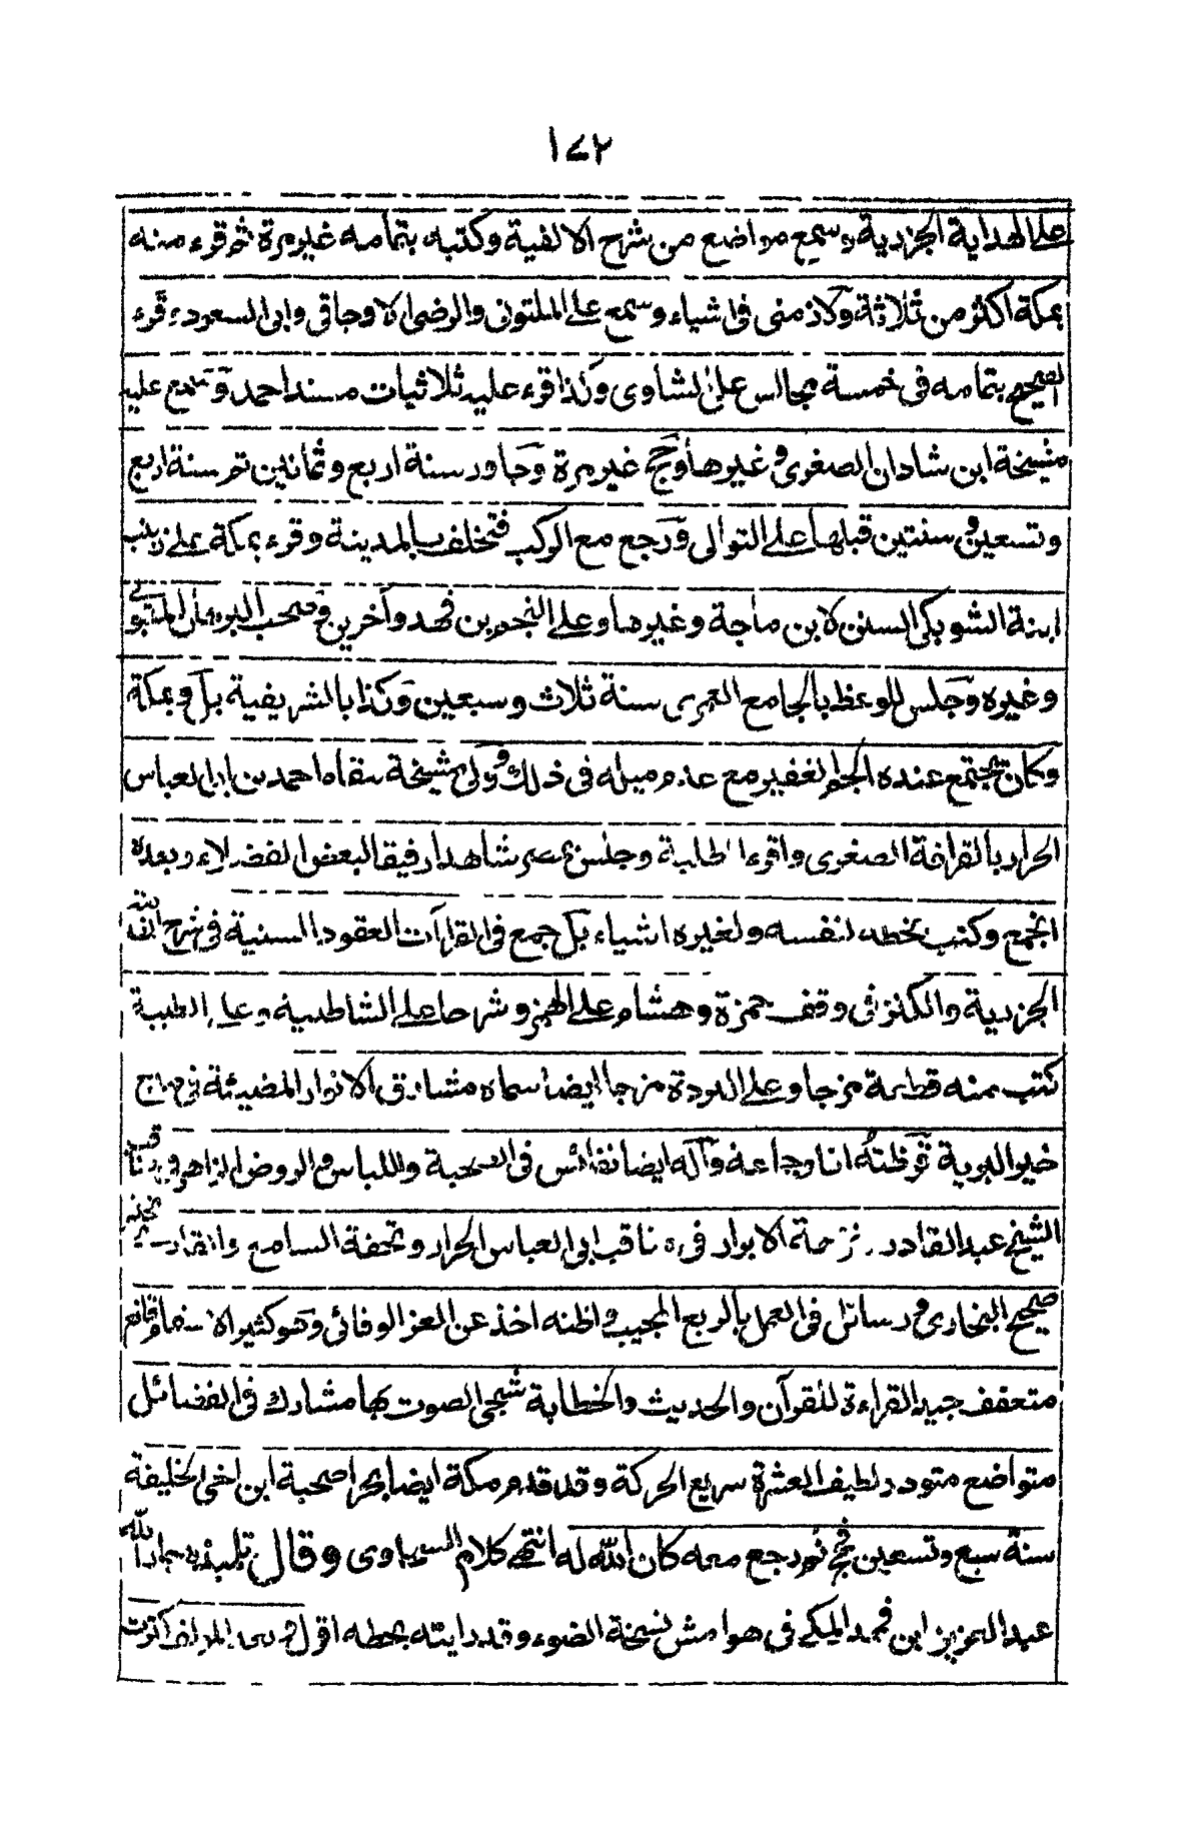 ١٧٢
على الهداية الجزرية وسمع مواضع من شرح الالفية وكتبه بتمامه غير مرة ثم قرء منه
بمكة اكثر من ثلاثة ولازمنى فى اشياء وسمع على الملتونى والرضى الاوجاقى وابى السعود قرء
الصحيح بتمامه فى خمسة مجالس على الشاوى وكذا قرء عليه ثلاثيات مسند احمد وسمع عليه
مشيخة ابن شاذان الصغرى وغيرها وحج غير مرة وجاور سنة اربع وثمانين ثم سنة اربع
وتسعين وسنتين قبلها على التوالى ورجع مع الركب فتخلف بالمدينة وقرء بمكة على زينب
ابنة الشوبكى السنن لابن ماجة وغيرها وعلى النجم بن فهد وآخرين وصحب البرهان المتبولى
وغيره وجلس للوعظ بالجامع الغمرى سنة ثلاث وسبعين وكذا بالشريفية بل وبمكة
وكان يجتمع عنده الجم الغفير مع عدم ميله فى ذلك وولى مشيخة مقام احمد بن ابى العباس
الحرار بالقرافة الصغرى واقرء الطلبة وجلس بمصر شاهدا رفيقا لبعض الفضلاء وبعده
انجمع وكتب بخطه لنفسه ولغيره اشياء بل جمع فى القراآت العقود السنية فى شرح
الجزرية والكنز فى وقف حمزة وهشام على الهمز وشرحا على الشاطبية وعلى الطيبة
كتب منه قطعة مزجا وعلى البردة مزجا ايضا سماه مشارق الانوار المضيئة فى مدح
خير البرية قرظته انا وجماعة وله ايضا نفائس فى الصحبة واللباس والروض الزاهر فى
الشيخ عبد القادر نزهة الابرار فى مناقب ابى العباس الحرار وتحفة السامع والقارى
صحيح البخارى ورسائل فى العمل بالربع المجيب واظنه اخذ عن العز الوفائى وهو كثير الاسقام قانع
متعفف جيد القراءة للقرآن والحديث والخطابة شجى الصوت بها مشارك فى الفضائل
متواضع متودد لطيف العشرة سريع الحركة وقد قدم مكة ايضا بحرا صحبة ابن اخى الخليفة
سنة سبع وتسعين فحج ثم رجع معه كان الله له انتهى كلام السخاوى وقال تلميذه جار الله
عبد العزيز ابن فهد المكى فى هوامش نسخة الضوء وقد رايته بخطه اقول